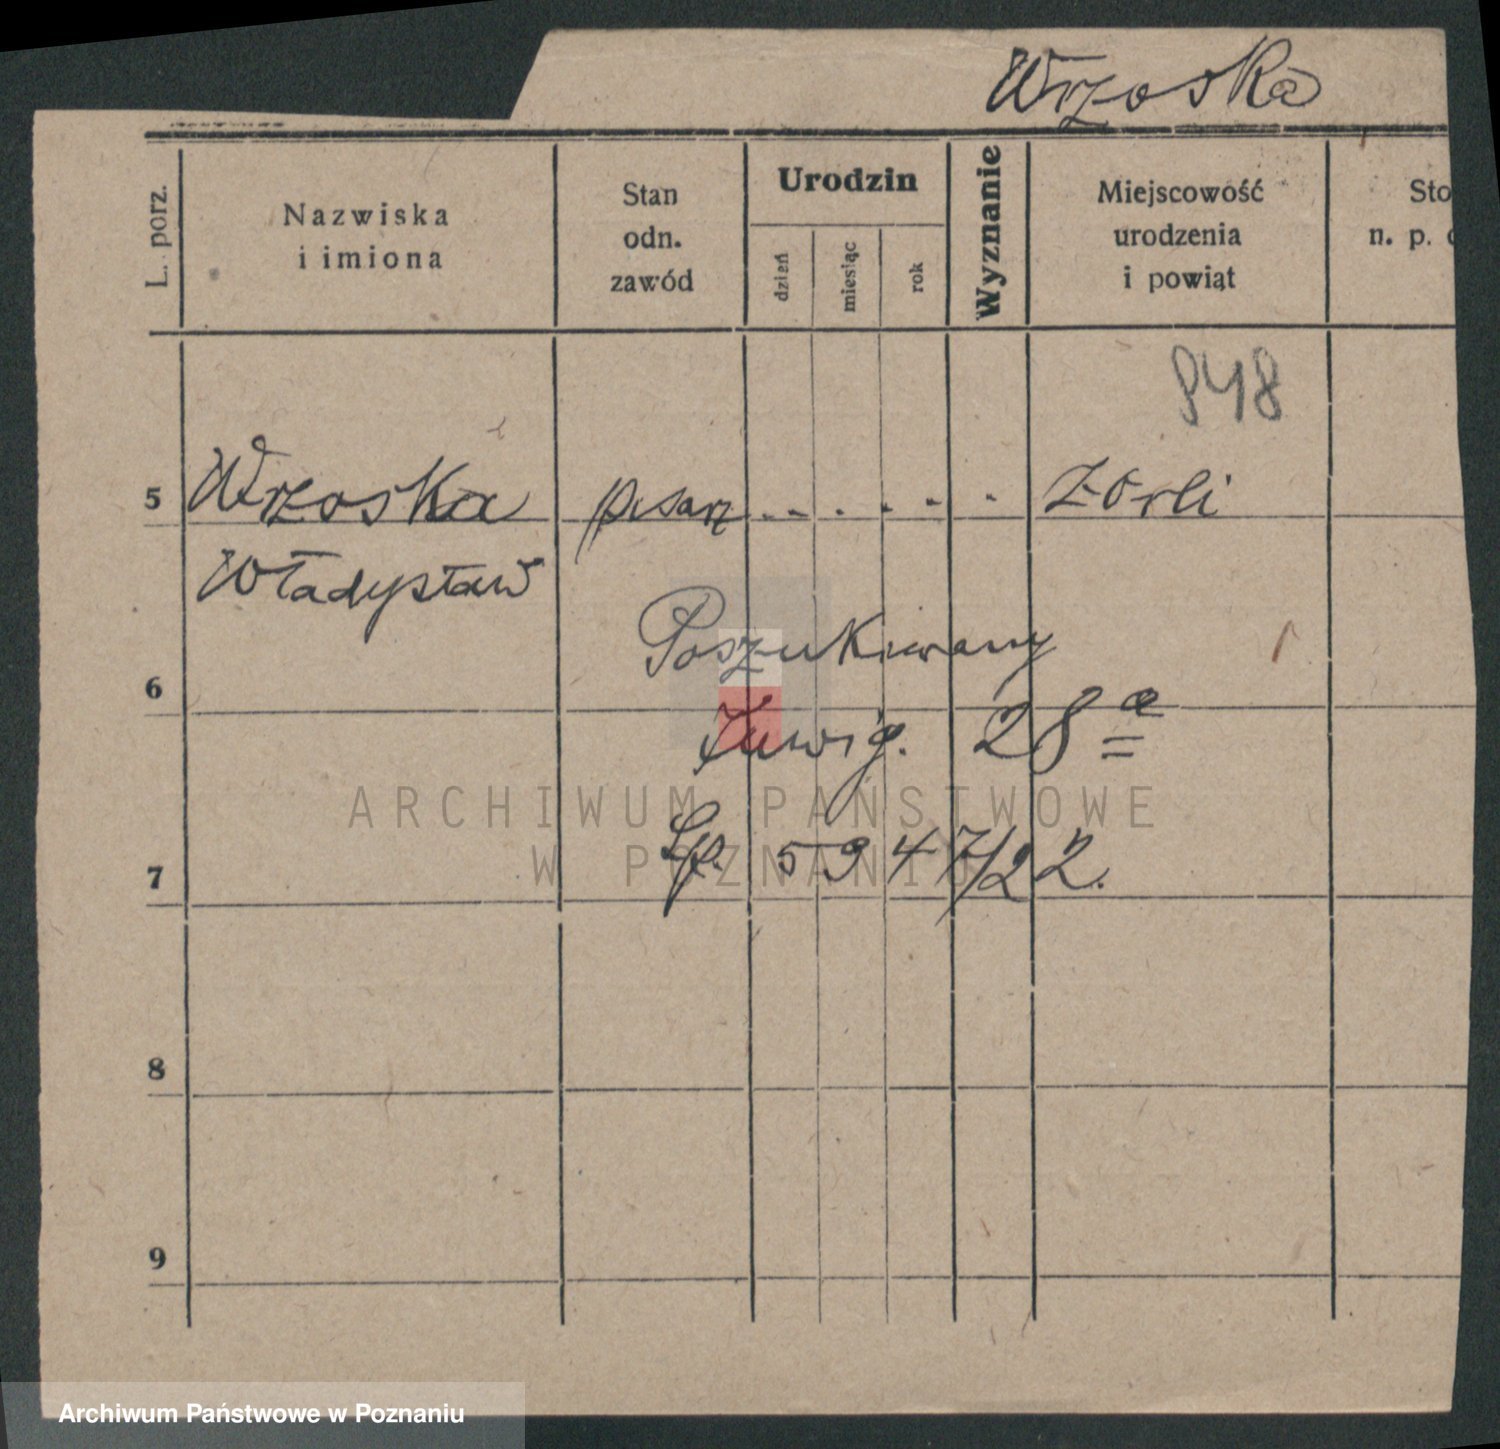 Wrzoska
L. porz.
Nazwiska
i imiona
Stan
odn.
zawód
Urodzin
dzień
miesiąc
rok
Wyznanie
Miejscowość
urodzenia
i powiąt
Sto
n. p.
848
5 Wrzoska pisarz Zorli
Władysław
Poszukiwany
6
28 a
ARCHIWUM PAŃSTWOWE
W POZNANIU
7 Lp. 5947/22.
8
9
Archiwum Państwowe w Poznaniu